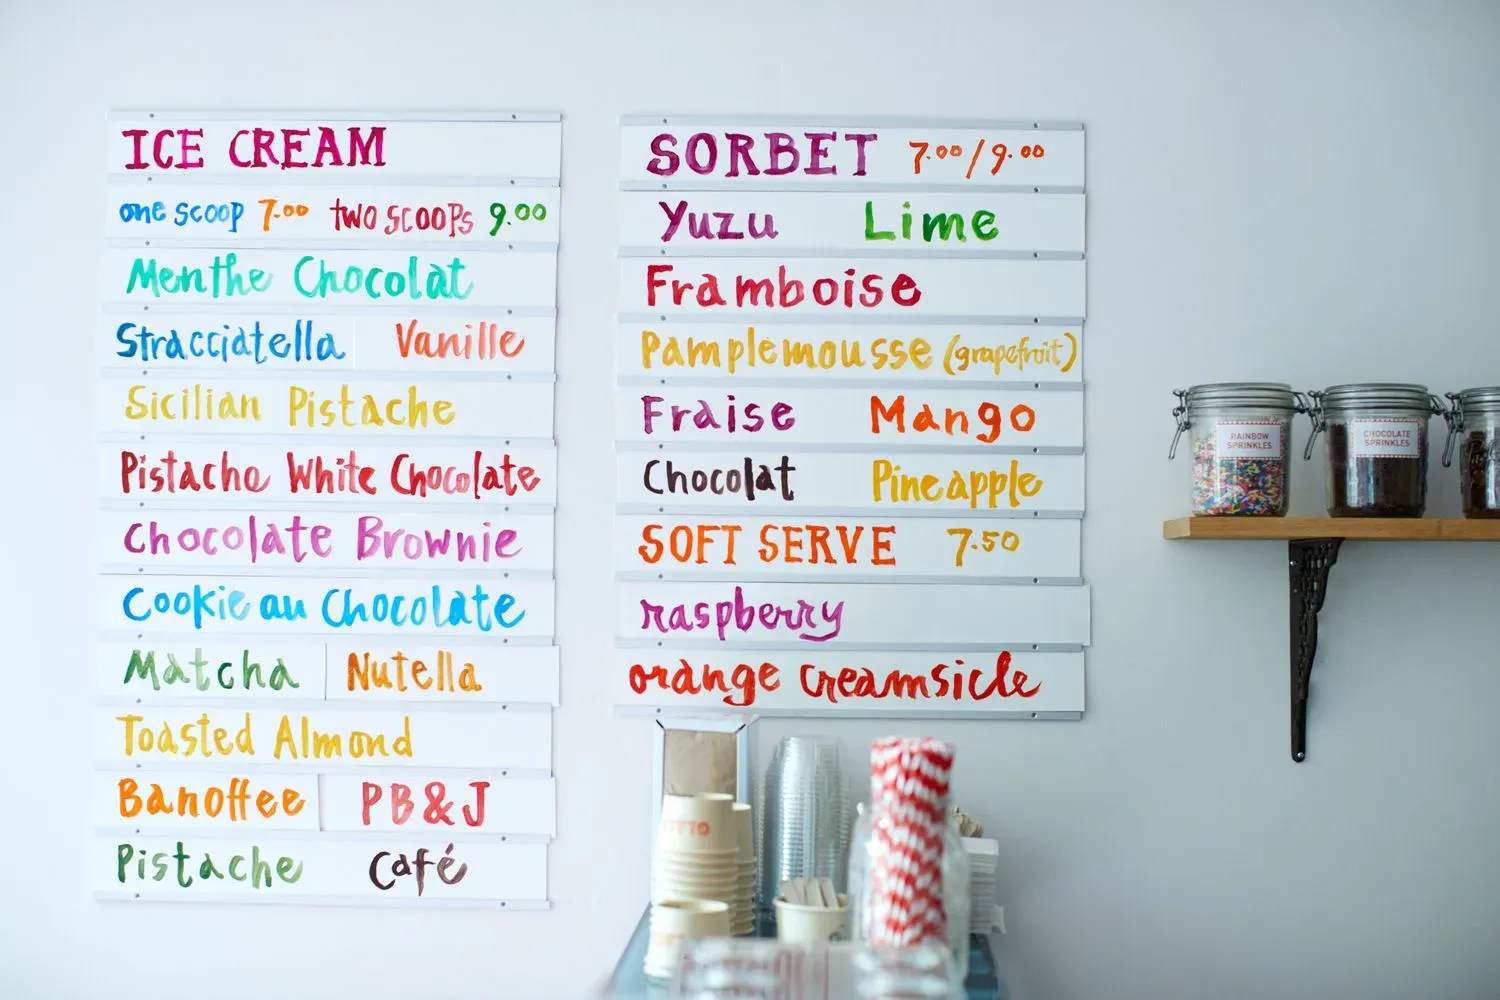 ICE CREAM
one scoop 7.00 two scoops 9.00
Menthe Chocolat
Stracciatella Vanille
Sicilian Pistache
Pistache White Chocolate
Chocolate Brownie
Cookie au Chocolate
Matcha Nutella
Toasted Almond
Banoffee PB&J
Pistache Café
SORBET 7.00/9.00
Yuzu Lime
Framboise
Pamplemousse (grapefruit)
Fraise Mango
Chocolat Pineapple
SOFT SERVE 7.50
raspberry
orange creamsicle
RAINBOW
SPRINKLES
CHOCOLATE
SPRINKLES